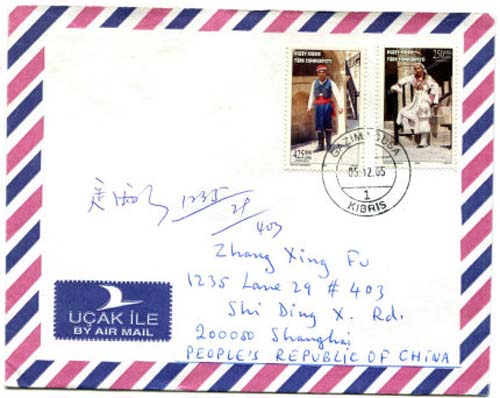 KUZEY KIBRIS
TÜRK CUMHURİYETİ
425
KUZEY KIBRIS
TÜRK CUMHURİYETİ
250
GAZİMAĞUSA
05.12.05
1
KIBRIS
1235
29
403
Zhang Xing Fu
1235 Lane 29 # 403
Shi Ding X. Rd.
200050 Shanghai
PEOPLE'S REPUBLIC OF CHINA
UÇAK İLE
BY AIR MAIL